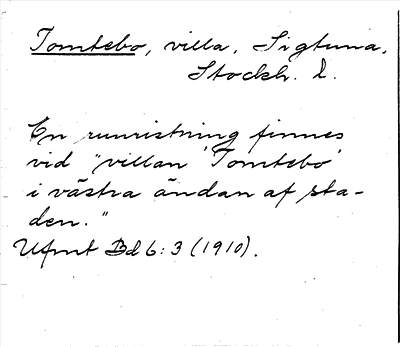 Tomtebo, villa, Sigtuna,
Stockh. l.
En runristning finnes
vid "villan 'Tomtebo'
i västra ändan af sta-
den."
Ufmt Bd 6:3 (1910).